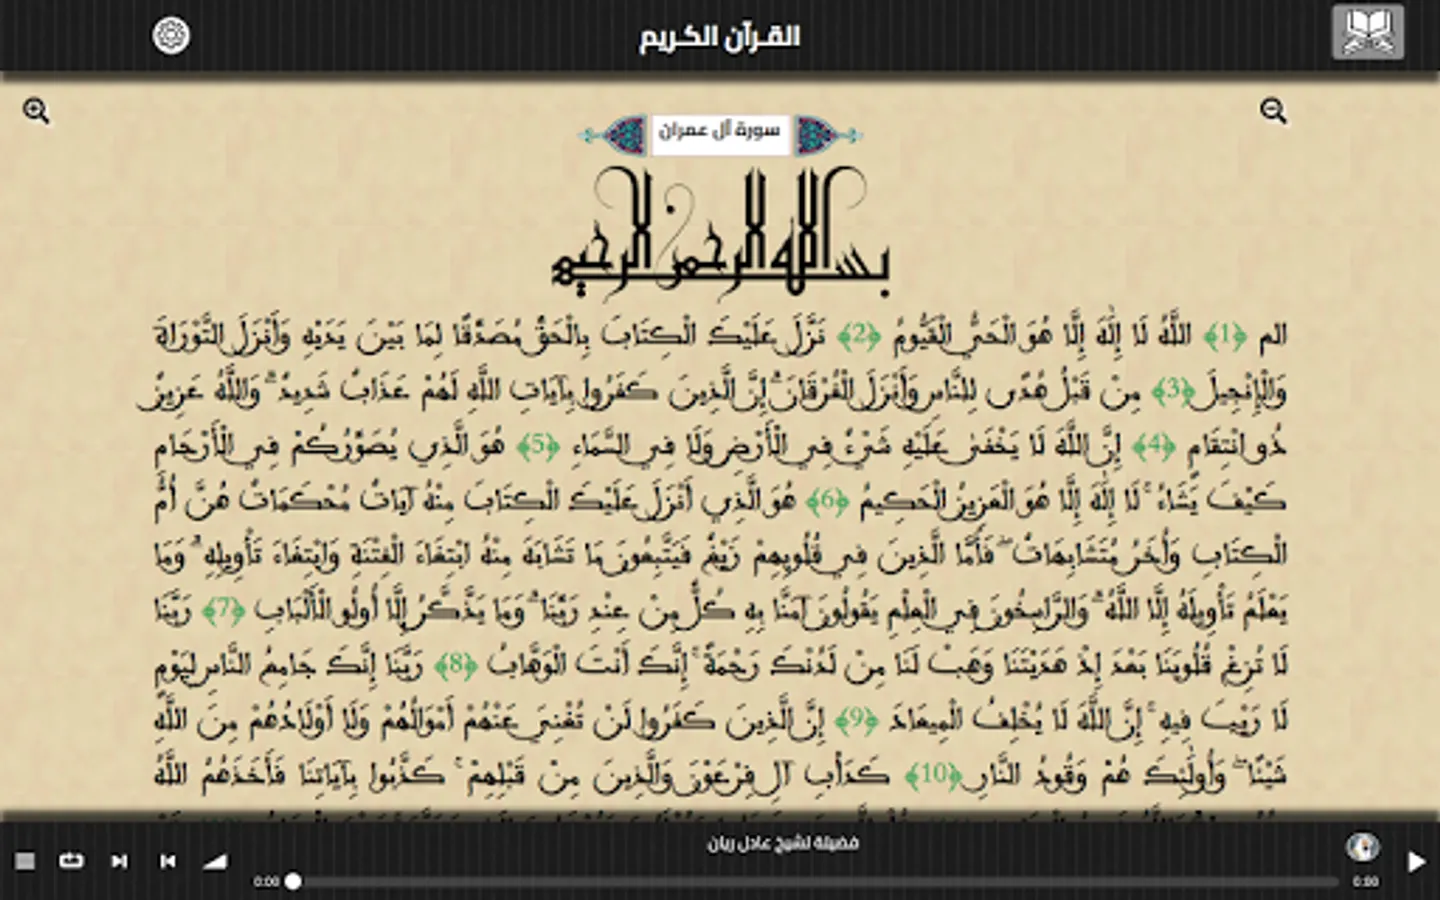 القـرآن الكـريم
سورة آل عمران
بسم الله الرحمن الرحيم
الم ﴿1﴾ اللَّهُ لَا إِلَٰهَ إِلَّا هُوَ الْحَيُّ الْقَيُّومُ ﴿2﴾ نَزَّلَ عَلَيْكَ الْكِتَابَ بِالْحَقِّ مُصَدِّقًا لِمَا بَيْنَ يَدَيْهِ وَأَنْزَلَ التَّوْرَاةَ
وَالْإِنْجِيلَ ﴿3﴾ مِنْ قَبْلُ هُدًى لِلنَّاسِ وَأَنْزَلَ الْفُرْقَانَ ۗ إِنَّ الَّذِينَ كَفَرُوا بِآيَاتِ اللَّهِ لَهُمْ عَذَابٌ شَدِيدٌ ۗ وَاللَّهُ عَزِيزٌ
ذُو انْتِقَامٍ ﴿4﴾ إِنَّ اللَّهَ لَا يَخْفَىٰ عَلَيْهِ شَيْءٌ فِي الْأَرْضِ وَلَا فِي السَّمَاءِ ﴿5﴾ هُوَ الَّذِي يُصَوِّرُكُمْ فِي الْأَرْحَامِ
كَيْفَ يَشَاءُ ۚ لَا إِلَٰهَ إِلَّا هُوَ الْعَزِيزُ الْحَكِيمُ ﴿6﴾ هُوَ الَّذِي أَنْزَلَ عَلَيْكَ الْكِتَابَ مِنْهُ آيَاتٌ مُحْكَمَاتٌ هُنَّ أُمُّ
الْكِتَابِ وَأُخَرُ مُتَشَابِهَاتٌ ۖ فَأَمَّا الَّذِينَ فِي قُلُوبِهِمْ زَيْغٌ فَيَتَّبِعُونَ مَا تَشَابَهَ مِنْهُ ابْتِغَاءَ الْفِتْنَةِ وَابْتِغَاءَ تَأْوِيلِهِ ۗ وَمَا
يَعْلَمُ تَأْوِيلَهُ إِلَّا اللَّهُ ۗ وَالرَّاسِخُونَ فِي الْعِلْمِ يَقُولُونَ آمَنَّا بِهِ كُلٌّ مِنْ عِنْدِ رَبِّنَا ۗ وَمَا يَذَّكَّرُ إِلَّا أُولُو الْأَلْبَابِ ﴿7﴾ رَبَّنَا
لَا تُزِغْ قُلُوبَنَا بَعْدَ إِذْ هَدَيْتَنَا وَهَبْ لَنَا مِنْ لَدُنْكَ رَحْمَةً ۚ إِنَّكَ أَنْتَ الْوَهَّابُ ﴿8﴾ رَبَّنَا إِنَّكَ جَامِعُ النَّاسِ لِيَوْمٍ
لَا رَيْبَ فِيهِ ۚ إِنَّ اللَّهَ لَا يُخْلِفُ الْمِيعَادَ ﴿9﴾ إِنَّ الَّذِينَ كَفَرُوا لَنْ تُغْنِيَ عَنْهُمْ أَمْوَالُهُمْ وَلَا أَوْلَادُهُمْ مِنَ اللَّهِ
شَيْئًا ۖ وَأُولَٰئِكَ هُمْ وَقُودُ النَّارِ ﴿10﴾ كَدَأْبِ آلِ فِرْعَوْنَ وَالَّذِينَ مِنْ قَبْلِهِمْ ۚ كَذَّبُوا بِآيَاتِنَا فَأَخَذَهُمُ اللَّهُ
فضيلة لشيخ عادل ريان
0:00 0:00